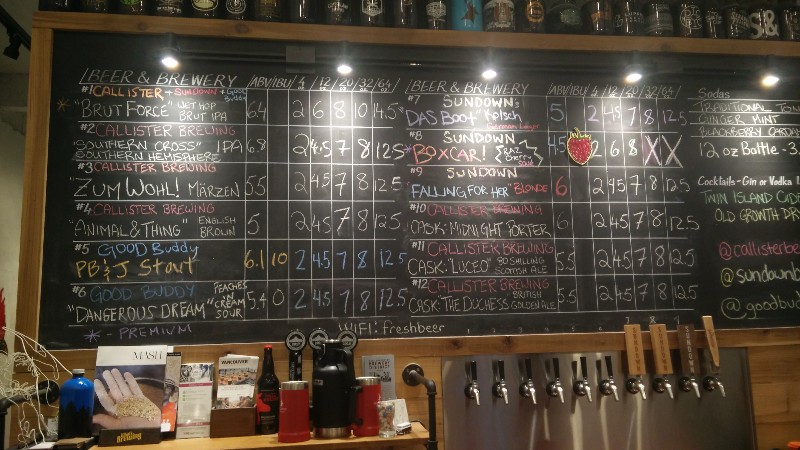 BEER & BREWERY ABV IBU 4 oz 12 20 32 64
#1 CALLISTER + SUNDOWN + Good Buddy
* "BRUT FORCE" WET HOP BRUT IPA 6.4 2 6 8 10 14.5
#2 CALLISTER BREWING
"SOUTHERN CROSS" IPA SOUTHERN HEMISPHERE 6.8 2 4.5 7 8 12.5
#3 CALLISTER BREWING
ZUM WOHL! MÄRZEN 5.5 2 4.5 7 8 12.5
#4 CALLISTER BREWING
"ANIMAL & THING" ENGLISH BROWN 5 2 4.5 7 8 12.5
#5 GOOD Buddy
PB & J Stout 6.1 10 2 4.5 7 8 12.5
#6 GOOD BUDDY
"DANGEROUS DREAM" PEACHES ON CREAM SOUR 5.4 0 2 4.5 7 8 12.5
* - PREMIUM
WIFI: freshbeer
BEER & BREWERY ABV IBU 4 12 20 32 64
#7 SUNDOWN
"DAS Boot" Kölsch 5 2 4.5 7 8 12.5
#8 SUNDOWN
* "BOXCAR! 4.5 2 6 8 X X
#9 SUNDOWN
FALLING FOR HER "BLONDE 6 2 4.5 7 8 12.5
#10 CALLISTER BREWING
CASK: MIDNIGHT PORTER 6 2 4.5 7 8 12.5
#11 CALLISTER BREWING
CASK: "LUCEO" 80 SHILLING SCOTTISH ALE 5.5 2 4.5 7 8 12.5
#12 CALLISTER BREWING
CASK: "THE DUCHESS" BRITISH GOLDEN ALE 5.5 2 4.5 7 8 12.5
Sodas
TRADITIONAL TON
GINGER MINT
BLACKBERRY CARDA
12 oz Bottle - 3.
Cocktails - Gin or Vodka
TWIN ISLAND CIDE
OLD GROWTH DR
@callisterbe
@sundownb
@goodbud
S&
MASH
VANCOUVER